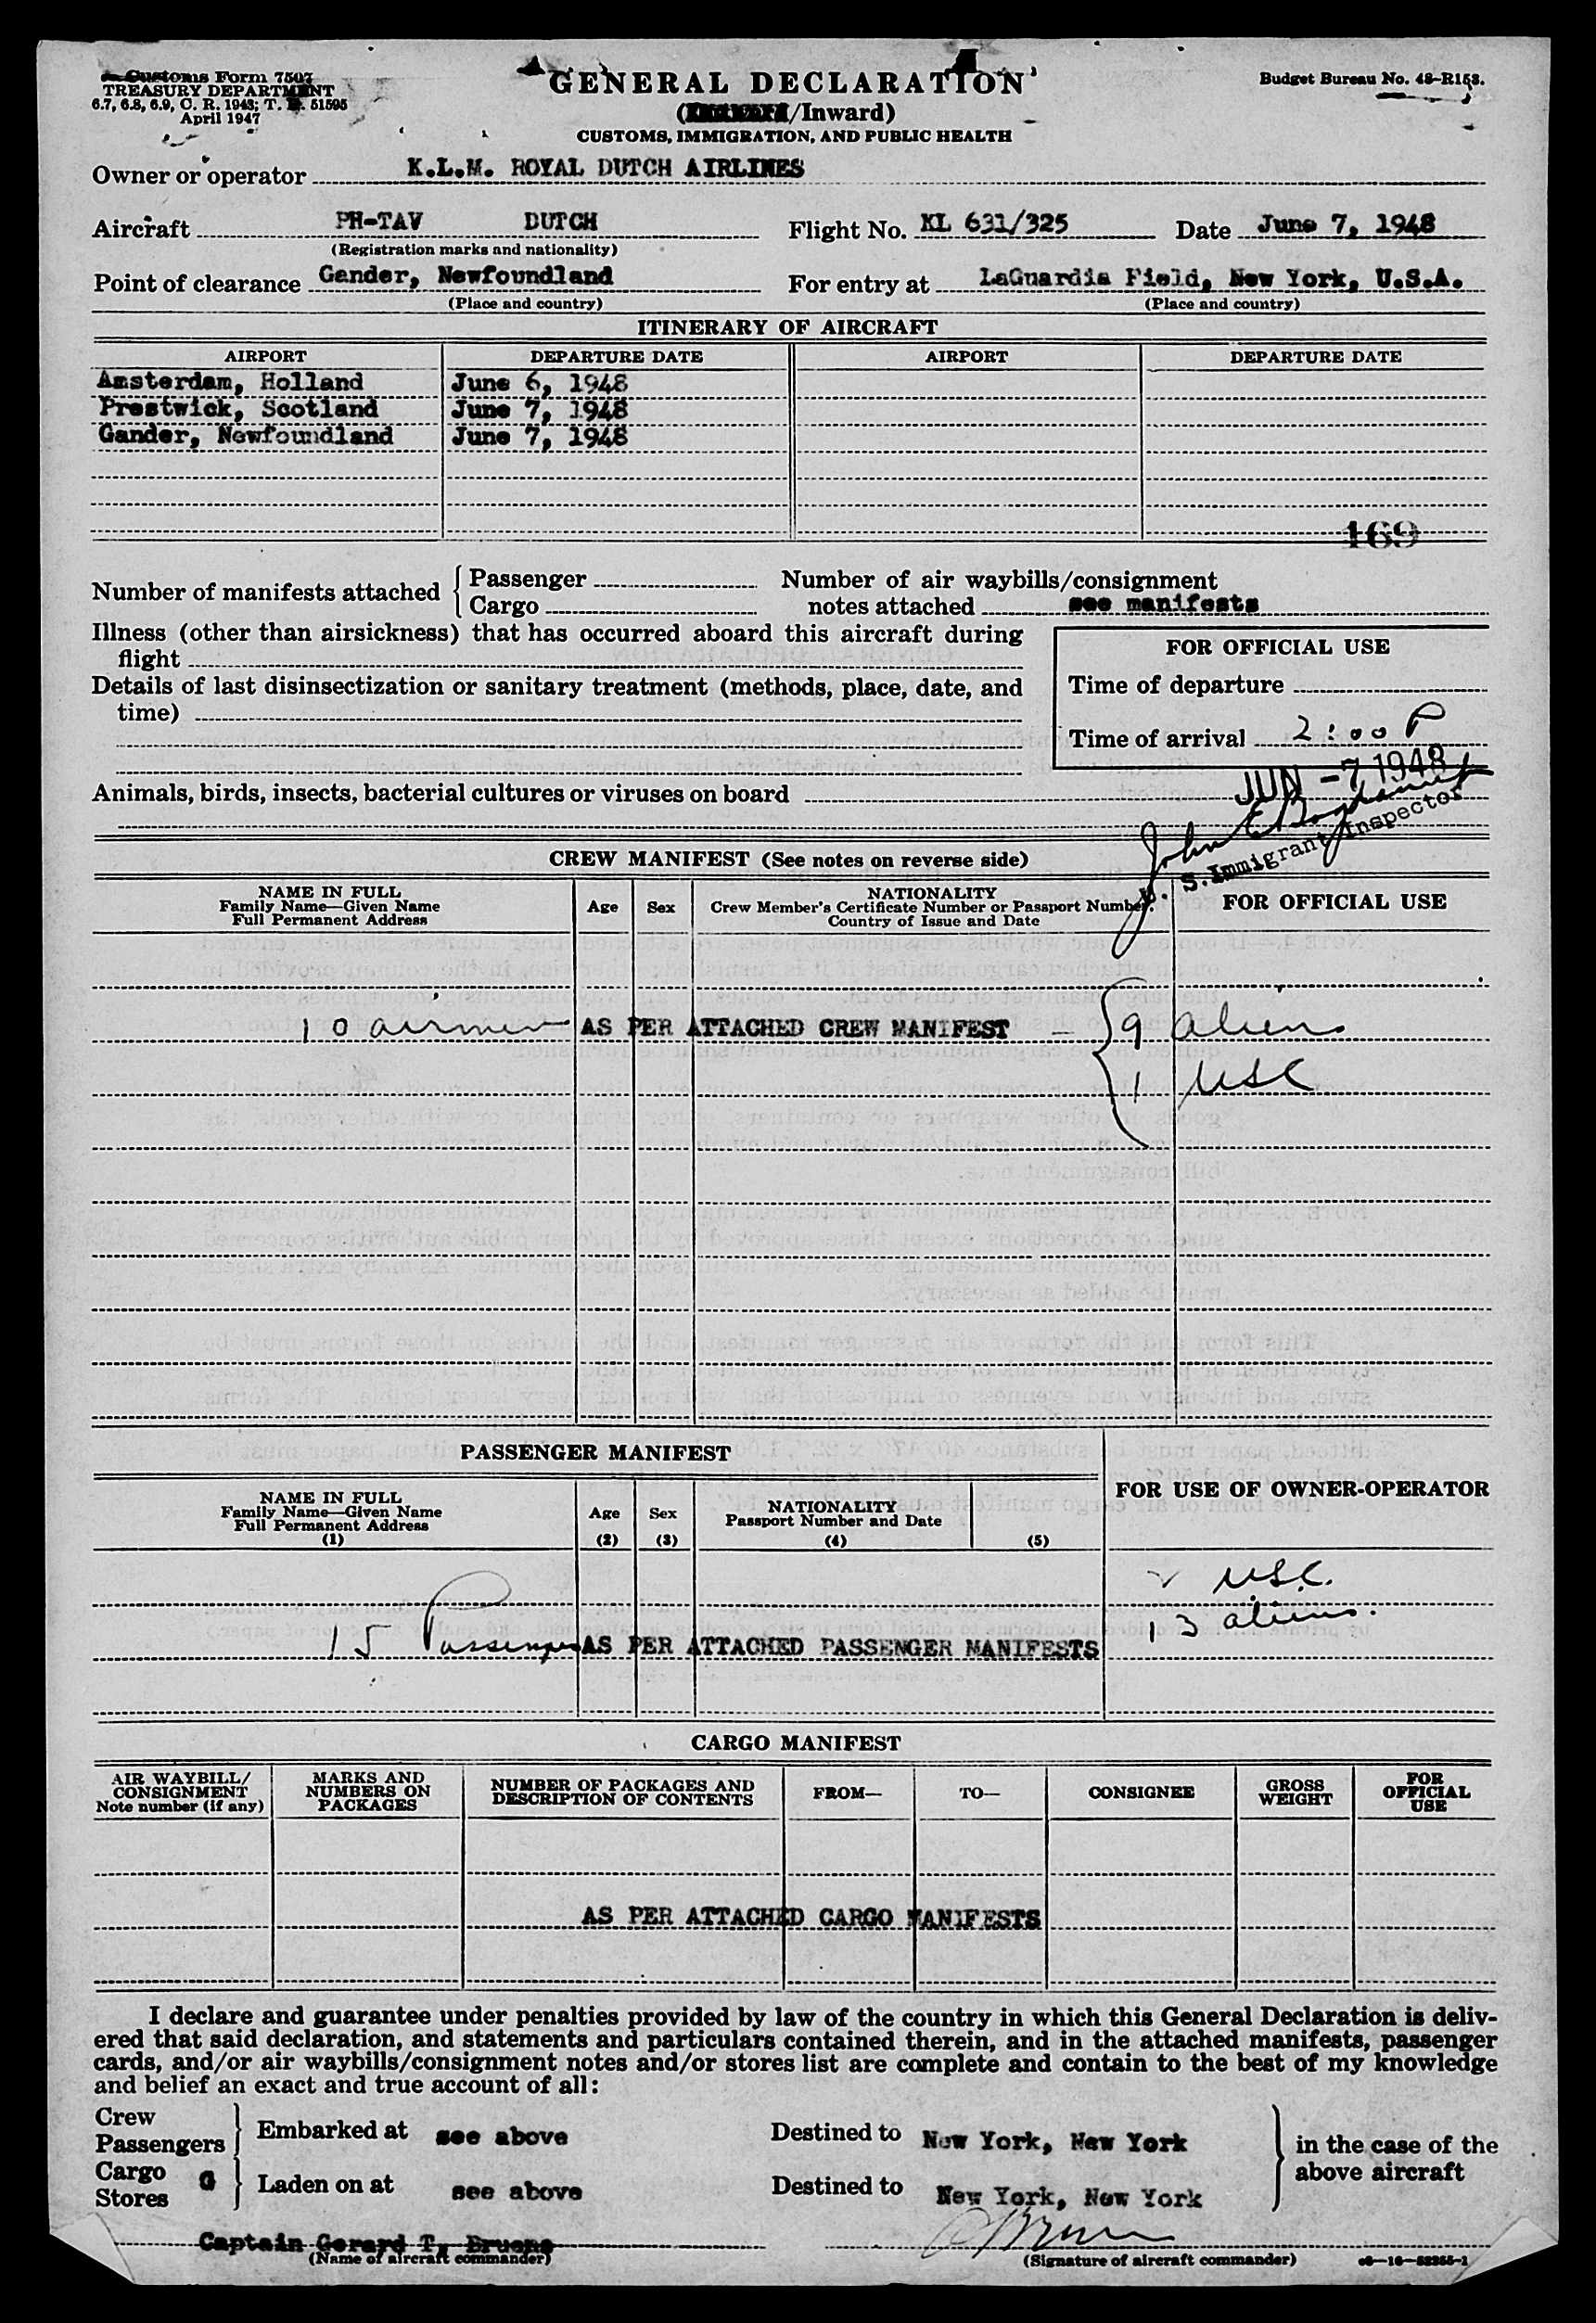 Customs Form 7507
TREASURY DEPARTMENT
6.7, 6.8, 6.9, C. R. 1943; T. D. 51595
April 1947
GENERAL DECLARATION
(/Inward)
CUSTOMS, IMMIGRATION, AND PUBLIC HEALTH
Budget Bureau No. 48-R153.
Owner or operator K.L.M. ROYAL DUTCH AIRLINES
Aircraft PH-TAV DUTCH Flight No. KL 631/325 Date June 7, 1948
(Registration marks and nationality)
Point of clearance Gander, Newfoundland For entry at LaGuardia Field, New York, U.S.A.
(Place and country) (Place and country)
ITINERARY OF AIRCRAFT
AIRPORT DEPARTURE DATE AIRPORT DEPARTURE DATE
Amsterdam, Holland June 6, 1948
Prestwick, Scotland June 7, 1948
Gander, Newfoundland June 7, 1948
169
Number of manifests attached { Passenger Number of air waybills/consignment
Cargo notes attached see manifests
Illness (other than airsickness) that has occurred aboard this aircraft during
flight
Details of last disinsectization or sanitary treatment (methods, place, date, and
time)
FOR OFFICIAL USE
Time of departure
Time of arrival 2:00 P
JUN -7 1948
Animals, birds, insects, bacterial cultures or viruses on board
John E
U. S. Immigrant Inspector
CREW MANIFEST (See notes on reverse side)
NAME IN FULL
Family Name—Given Name
Full Permanent Address
Age Sex
NATIONALITY
Crew Member's Certificate Number or Passport Number.
Country of Issue and Date
FOR OFFICIAL USE
10 airmen AS PER ATTACHED CREW MANIFEST — { 9 aliens
1 USC
PASSENGER MANIFEST
FOR USE OF OWNER-OPERATOR
NAME IN FULL
Family Name—Given Name
Full Permanent Address
(1)
Age
(2)
Sex
(3)
NATIONALITY
Passport Number and Date
(4) (5)
2 USC.
13 aliens.
15 Passengers AS PER ATTACHED PASSENGER MANIFESTS
CARGO MANIFEST
AIR WAYBILL/
CONSIGNMENT
Note number (if any)
MARKS AND
NUMBERS ON
PACKAGES
NUMBER OF PACKAGES AND
DESCRIPTION OF CONTENTS
FROM— TO— CONSIGNEE
GROSS
WEIGHT
FOR
OFFICIAL
USE
AS PER ATTACHED CARGO MANIFESTS
I declare and guarantee under penalties provided by law of the country in which this General Declaration is deliv-
ered that said declaration, and statements and particulars contained therein, and in the attached manifests, passenger
cards, and/or air waybills/consignment notes and/or stores list are complete and contain to the best of my knowledge
and belief an exact and true account of all:
Crew
Passengers } Embarked at see above Destined to New York, New York
Cargo
Stores } Laden on at see above Destined to New York, New York
in the case of the
above aircraft
Captain Gerard T. Bruens
(Name of aircraft commander) (Signature of aircraft commander)